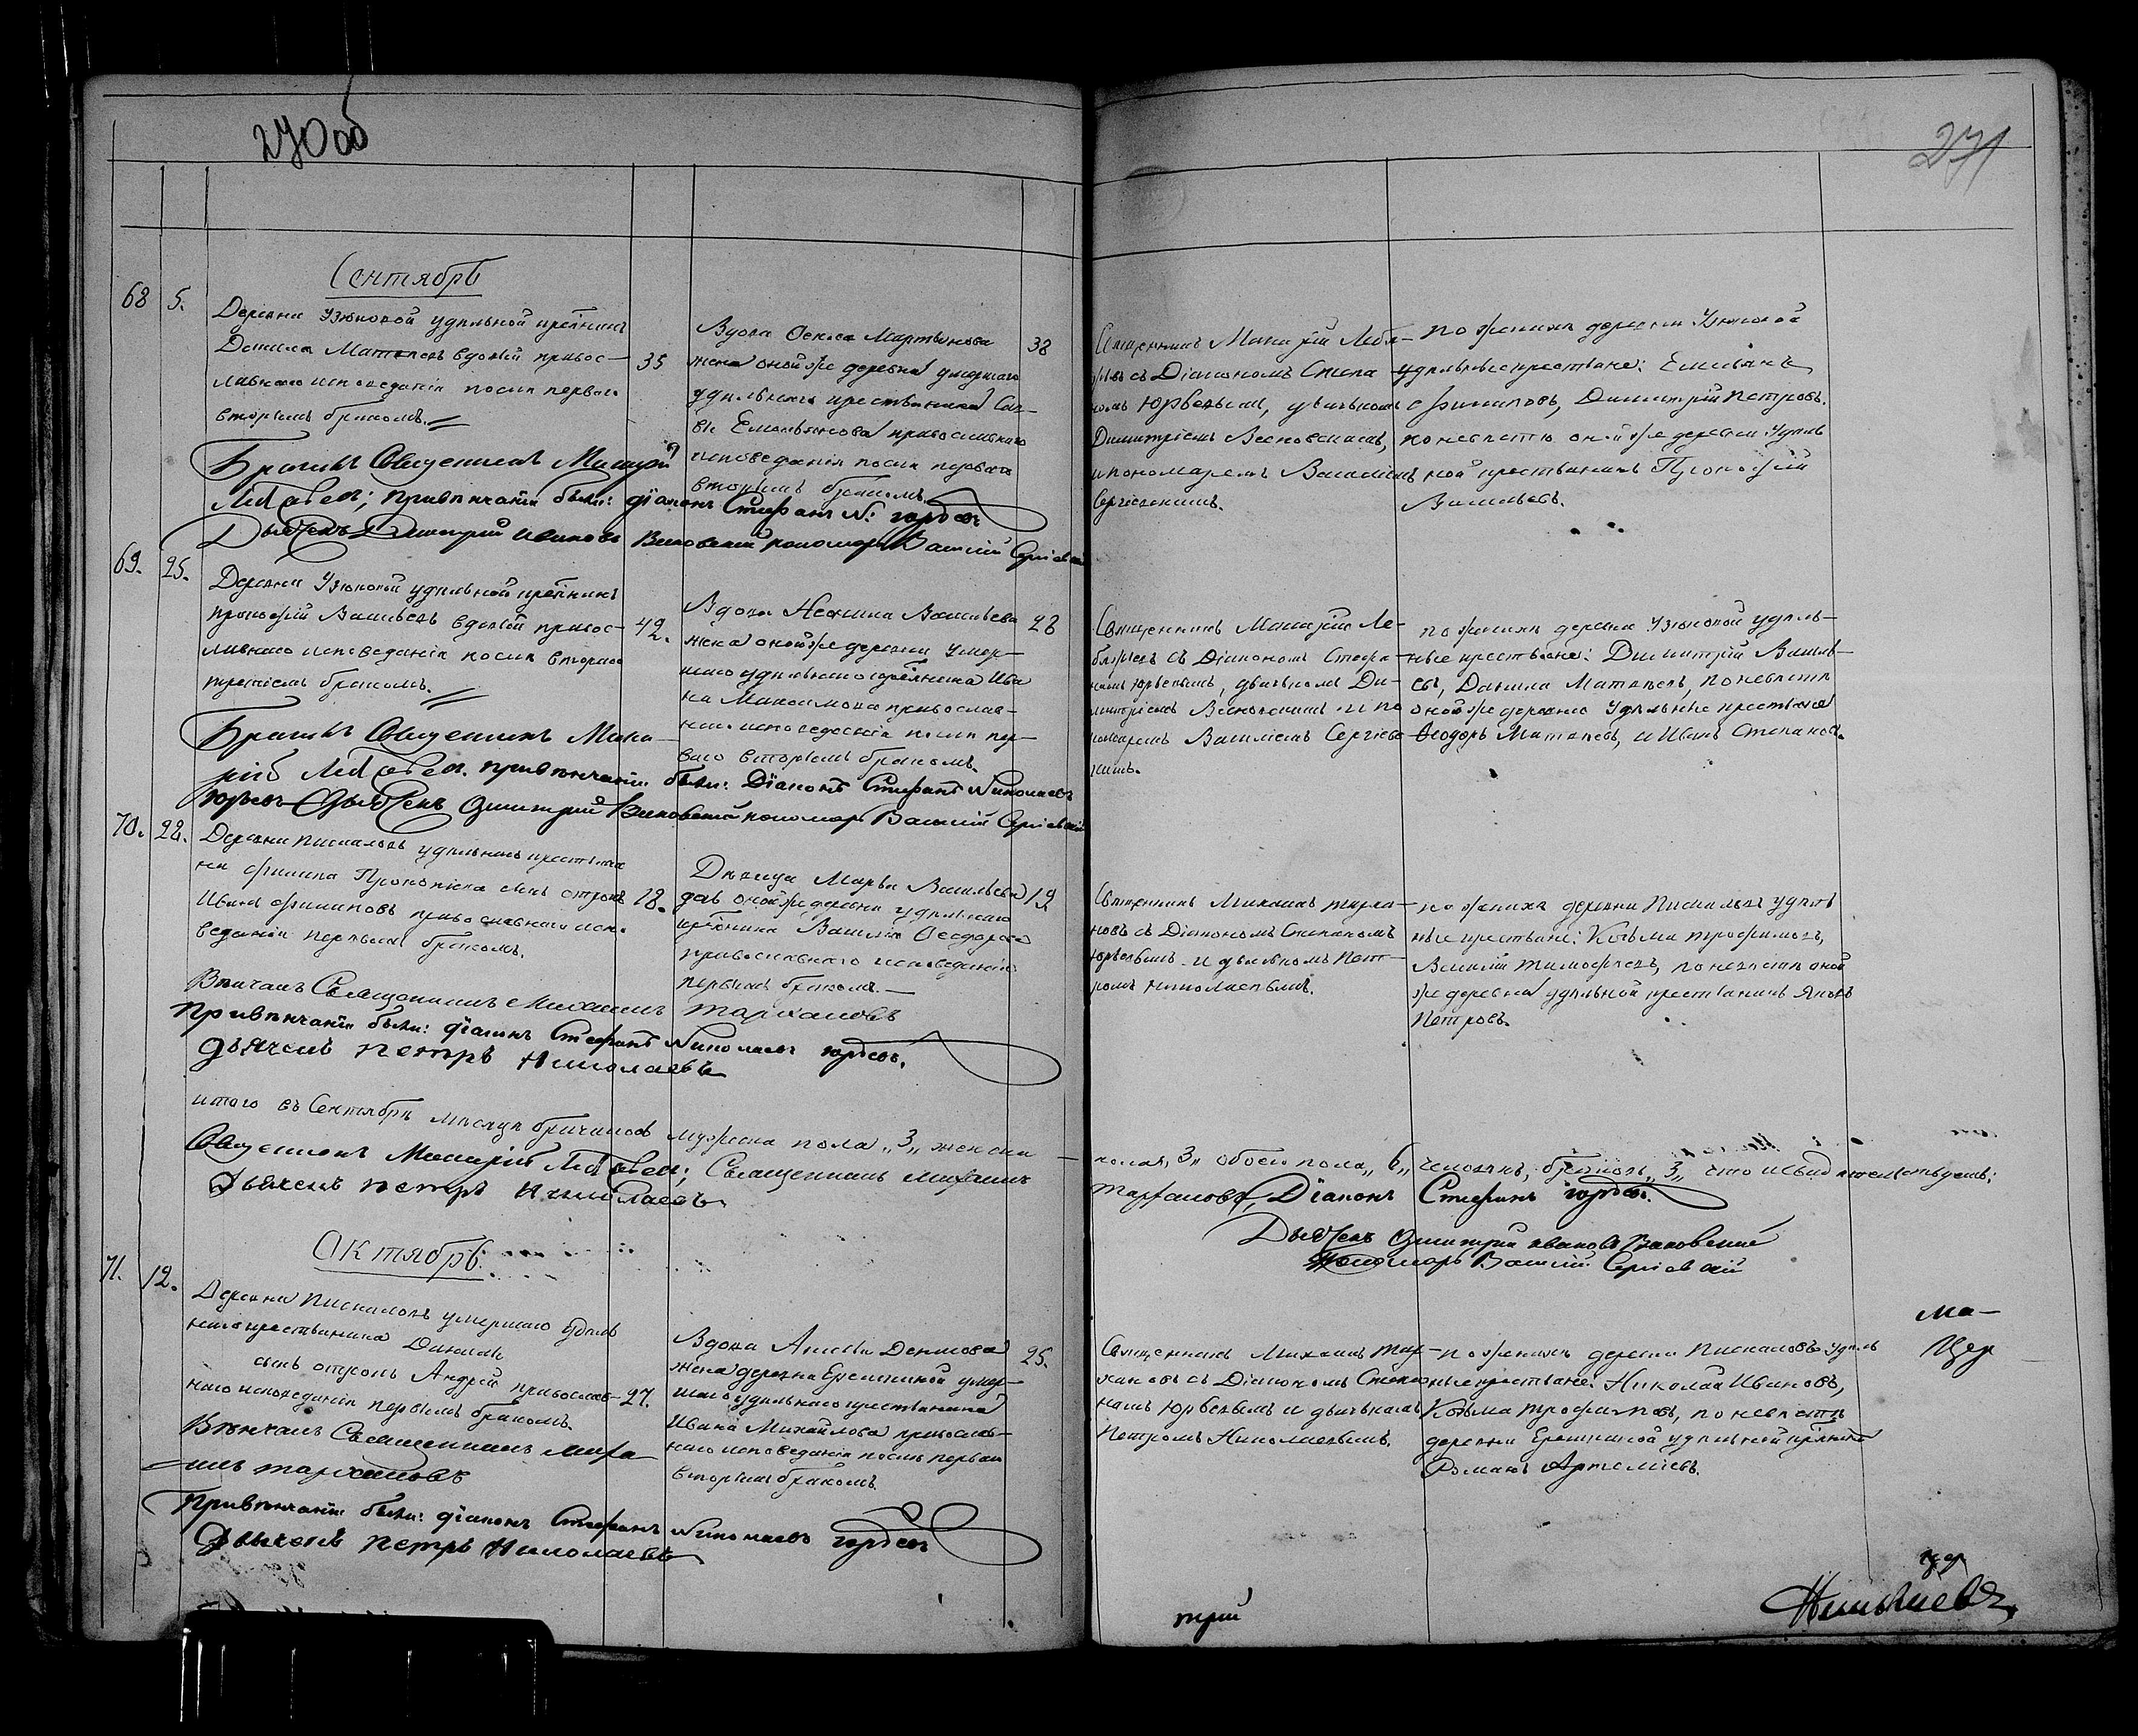 270 об
271
Сентябрь
68 5.
Деревни Узюковой удѣльной крестьнинъ
Данила Матвѣевъ вдовый правос-
лавнаго исповеданія послѣ перваго
вторымъ бракомъ.
35
Вдова Мартынова
жена оной же деревни умершаго
удѣльнаго крестьянина Сав-
вы Емельянова православнаго
исповеданія послѣ перваго
вторымъ бракомъ.
38
Священникъ Макарій Лебя-
жьевъ съ Діакономъ Стефа-
номъ Юрьевымъ, дьячкомъ
Димитріемъ
и пономаремъ Василіемъ
Сергіевскимъ.
по женихѣ деревни Узюковой
удѣльные крестьяне: Емельянъ
Филиповъ, Димитрій Петровъ.
по невѣстѣ оной же деревни Удѣль
ной крестьянинъ Прокофій
Васильевъ.
Бракъ Священникъ Макарій
привѣнчаніи были: діаконъ Стефанъ Н: Юрьевъ
Дьячекъ Димитрій Ивановъ пономарь Василій Сергіевскій
69. 25.
Деревни Узюковой удѣльной крестьнинъ
Прокофій Васильевъ вдовый правос-
лавнаго исповеданія послѣ втораго
третіемъ бракомъ.
42.
Вдова Васильева
жена оной же деревни умер-
шаго удѣльнаго крестьнина Ива
на Максимова православ-
наго исповеданія послѣ пер-
ваго вторымъ бракомъ.
28
Священникъ Макарій Ле-
бяжьевъ съ Діакономъ Стефа-
номъ Юрьевымъ, дьячкомъ Ди-
митріемъ и по
номаремъ Василіемъ Сергіевс
кимъ.
по женихѣ деревни Узюковой удѣль-
ные крестьяне: Димитрій Василь-
евъ, Данила Матвѣевъ, по невѣстѣ
оной же деревни Удѣльные крестьяне
Ѳеодоръ Матвѣевъ, и Иванъ Степановъ.
Бракъ Священникъ Мака-
рій привѣнчаніи были: Діаконъ Стефанъ Николаевъ
Юрьевъ Дьячекъ Димитрій пономарь Василій Сергіевскій
70. 28.
Деревни Пискаловъ удѣльнаго крестьяни
на Филиппа Прокопіева сынъ отрокъ
Иванъ Филиповъ православнаго испо
веданія первымъ бракомъ.
18.
Дѣвица Марья Васильева
дочь оной же деревни удѣльнаго
крестьнина Василія Ѳеодорова
православнаго исповеданія
первымъ бракомъ.
19
Священникъ Михаилъ Тарха-
новъ съ Діакономъ Стефаномъ
Юрьевымъ и дьячкомъ Пет-
ромъ Николаевымъ.
по женихѣ деревни Пискаловъ удѣль
ные крестьяне: Козьма Трофимовъ,
Василій Тимофѣевъ, по невѣстѣ оной
же деревни удѣльной крестьянинъ Яковъ
Петровъ.
Вѣнчалъ Священникъ Михаилъ Тархановъ
Привѣнчаніи были: діаконъ Стефанъ Николаевъ Юрьевъ.
Дьячекъ Петръ Николаевъ
итого въ Сентябрѣ мѣсяцѣ бричинов мужеска пола „3„ женска
пола „3„ обоего пола „6„ человѣкъ, браковъ „3„ что и свидѣтельствуемъ;
Священникъ Макарій Священникъ Михаилъ
Тархановъ, Діаконъ Стефанъ Юрьевъ.
Дьячекъ Петръ Николаевъ.
Дьячекъ Димитрій Ивановъ
Пономарь Василій Сергіевскій
Октябрь.
71. 12.
Деревни Пискаловъ умершаго Удѣль
наго крестьянина Данилы
сынъ отрокъ Андрей православ-
наго исповеданія первымъ бракомъ.
27.
Вдова Денисова
жена деревни Еремкиной умер-
шаго удѣльнаго крестьянина
Ивана Михайлова православ-
наго исповеданія послѣ перваго
вторымъ бракомъ.
25.
Священникъ Михаилъ Тар-
хановъ съ Діакономъ Стефа
номъ Юрьевымъ и дьячкомъ
Петромъ Николаевымъ.
по женихѣ деревни Пискаловъ удѣль
ные крестьяне: Николай Ивановъ,
Козьма Трофимовъ, по невѣстѣ
деревни Еремкиной удѣльной крестьнинъ
Романъ Артеміевъ.
Ма-
Цер
Вѣнчалъ Священникъ Миха
-илъ Тархановъ
Привѣнчаніи были: діаконъ Стефанъ Николаевъ Юрьевъ
Дьячекъ Петръ Николаевъ
трій